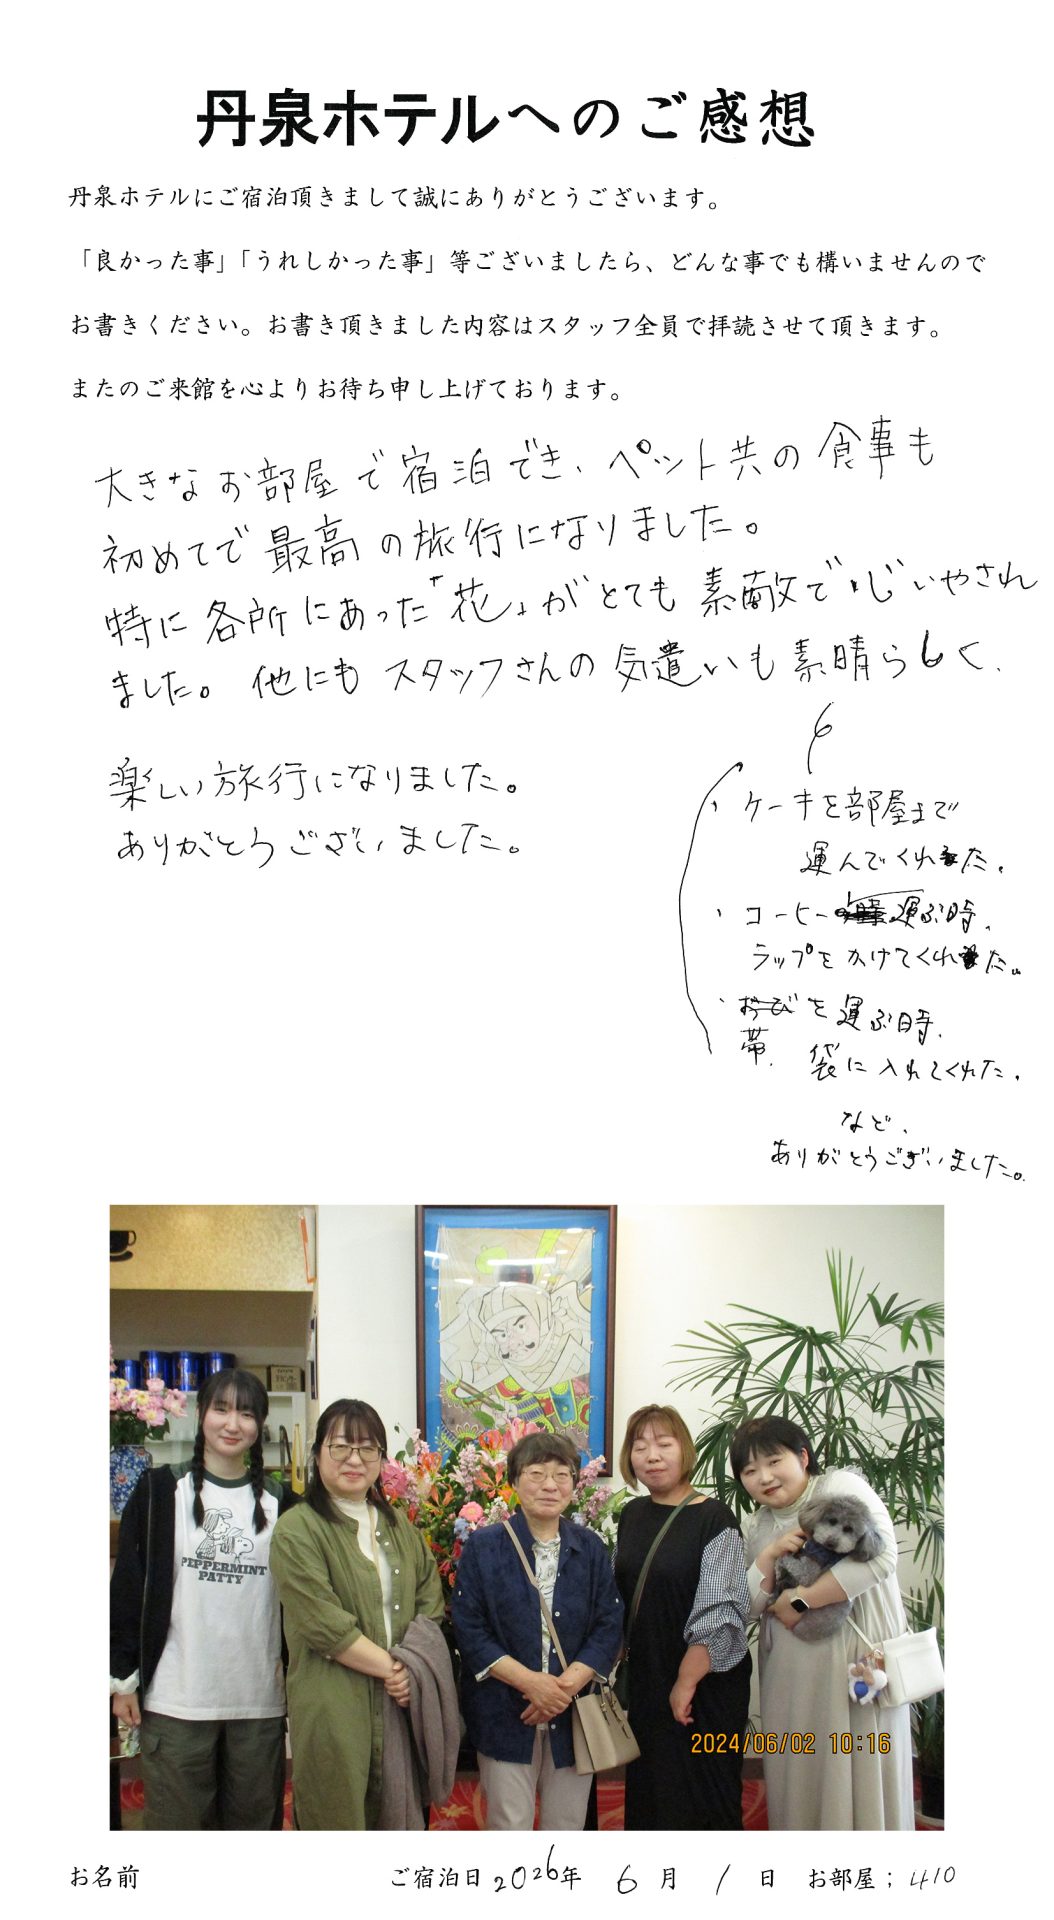 丹泉ホテルへのご感想
丹泉ホテルにご宿泊頂きまして誠にありがとうございます。
「良かった事」「うれしかった事」等ございましたら、どんな事でも構いませんので
お書きください。お書き頂きました内容はスタッフ全員で拝読させて頂きます。
またのご来館を心よりお待ち申し上げております。
大きなお部屋で宿泊でき、ペット共の食事も
初めてで最高の旅行になりました。
特に各所にあった「花」がとても素敵で心いやされ
ました。他にもスタッフさんの気遣いも素晴らしく、
楽しい旅行になりました。
ありがとうございました。
・ケーキを部屋まで
運んでくれた。
・コーヒー運ぶ時、
ラップをかけてくれた。
・帯を運ぶ時、
袋に入れてくれた。
など、
ありがとうございました。
PEPPERMINT
PATTY
2024/06/02 10:16
お名前 ご宿泊日 2026年 6月 1日 お部屋; 410